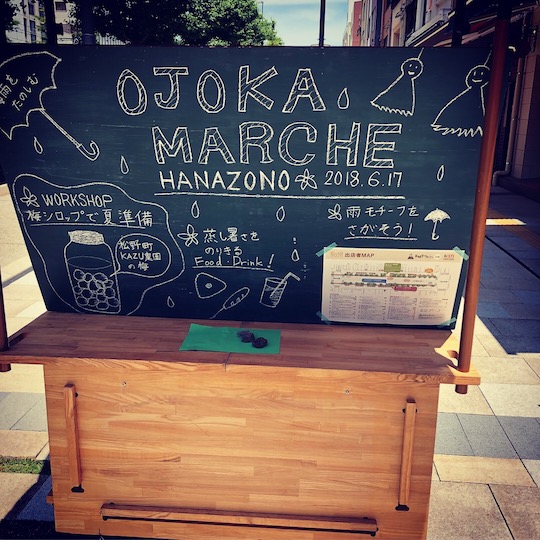 雨を
たのしむ
OJOKA
MARCHE
HANAZONO 2018.6.17
WORKSHOP
梅シロップで夏準備
松野町
KAZU農園
の梅
蒸し暑さを
のりきる
Food・Drink!
雨モチーフを
さがそう!
出店者MAP